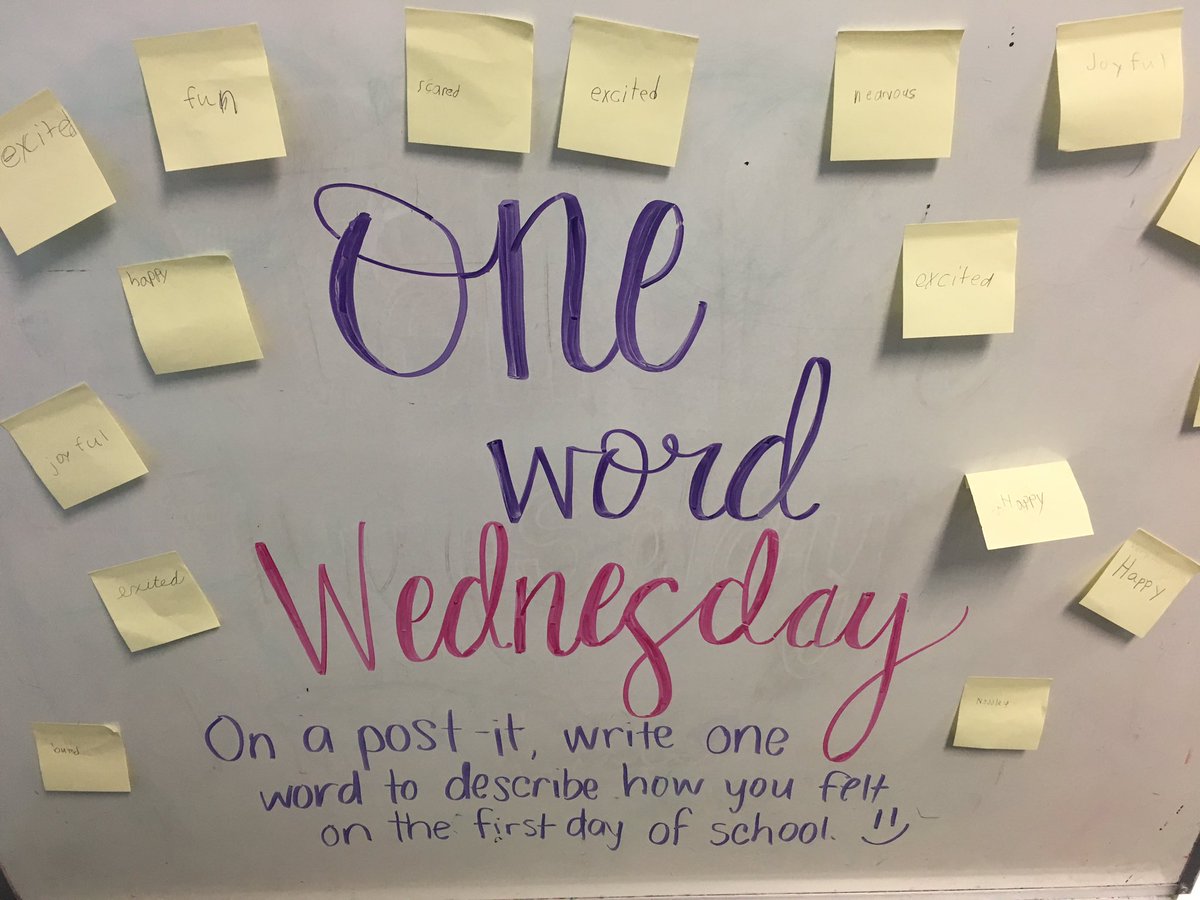 fun
scared
excited
nearvous
Joyful
excited
happy
excited
One
word
Wednesday
joyful
Happy
Happy
exited
On a post-it, write one
word to describe how you felt
on the first day of school.